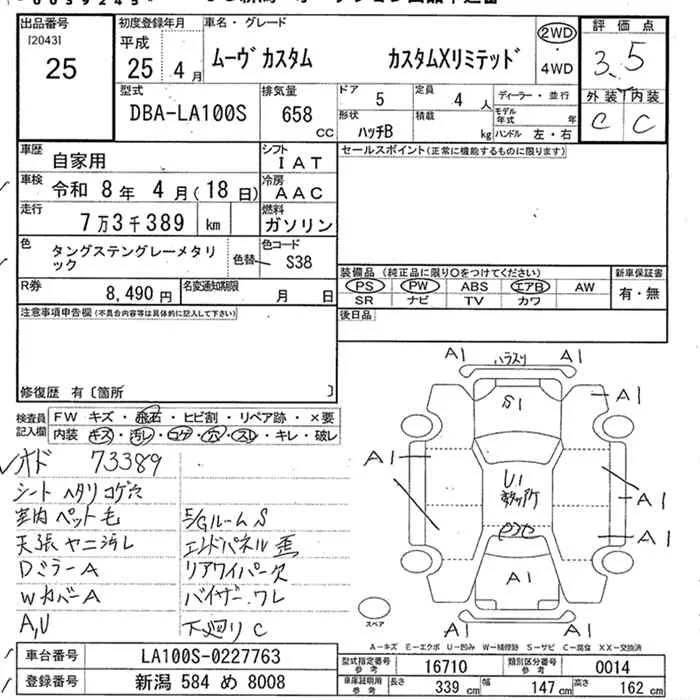 出品番号
[2043]
25
初度登録年月
平成
25 4月
車名・グレード
ムーヴ カスタム カスタムXリミテッド
2WD
・
4WD
評価点
3.5
外装 内装
C C
型式
DBA-LA100S
排気量
658
CC
ドア
5
定員
4人
ディーラー・並行
モデル年式 年
形状
ハッチB
積載
kg
ハンドル 左・右
車歴
自家用
シフト
IAT
セールスポイント(正常に機能するものに限ります)
車検
令和 8年 4月(18日)
冷房
AAC
走行
7万3千389 km
燃料
ガソリン
色
タングステングレーメタリ
ック
色替
色コード
S38
R券
8,490円
名変通知期限
月 日
装備品(純正品に限り○をつけてください)
PS PW ABS エアB AW
SR ナビ TV カワ
新車保証書
有・無
注意事項申告欄(不具合内容等は具体的に記入して下さい)
後日品
修復歴 有〔箇所 〕
検査員
記入欄
FW キズ・飛石・ヒビ割・リペア跡・×要
内装 キズ・汚レ・コゲ・穴・スレ・キレ・破レ
オド 73389
シート ヘタリ コゲ穴
室内 ペット毛
天張 ヤニ汚レ
Dミラー A
Wカバー A
A,U
E/Gルーム S
エンドパネル
リアワイパー欠
バイザー ワレ
下廻り C
A1 ハラスリ A1
S1
A1
A1
U1
A1
A1
A1
A1 A1
スペア
A-キズ E-エクボ U-凹み W-補修跡 S-サビ C-腐食 XX-交換済
車台番号
LA100S-0227763
型式指定番号
参考
16710
類別区分番号
参考
0014
登録番号
新潟 584 め 8008
車庫証明用
参考
長さ 339 cm
幅 147 cm
高さ 162 cm